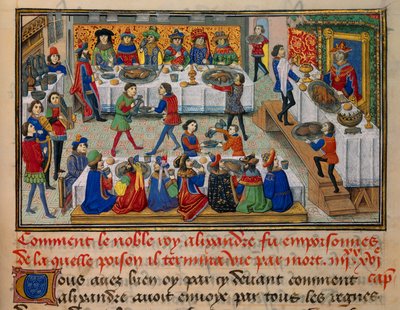 Comment le noble roy alixandre fu empoisonnes
De la quelle poison il termina vie par mort. iiii.xx.xvi
Vous avez bien oy par cy devant comment cap.
alixandre avoit envoye par tous les regnes